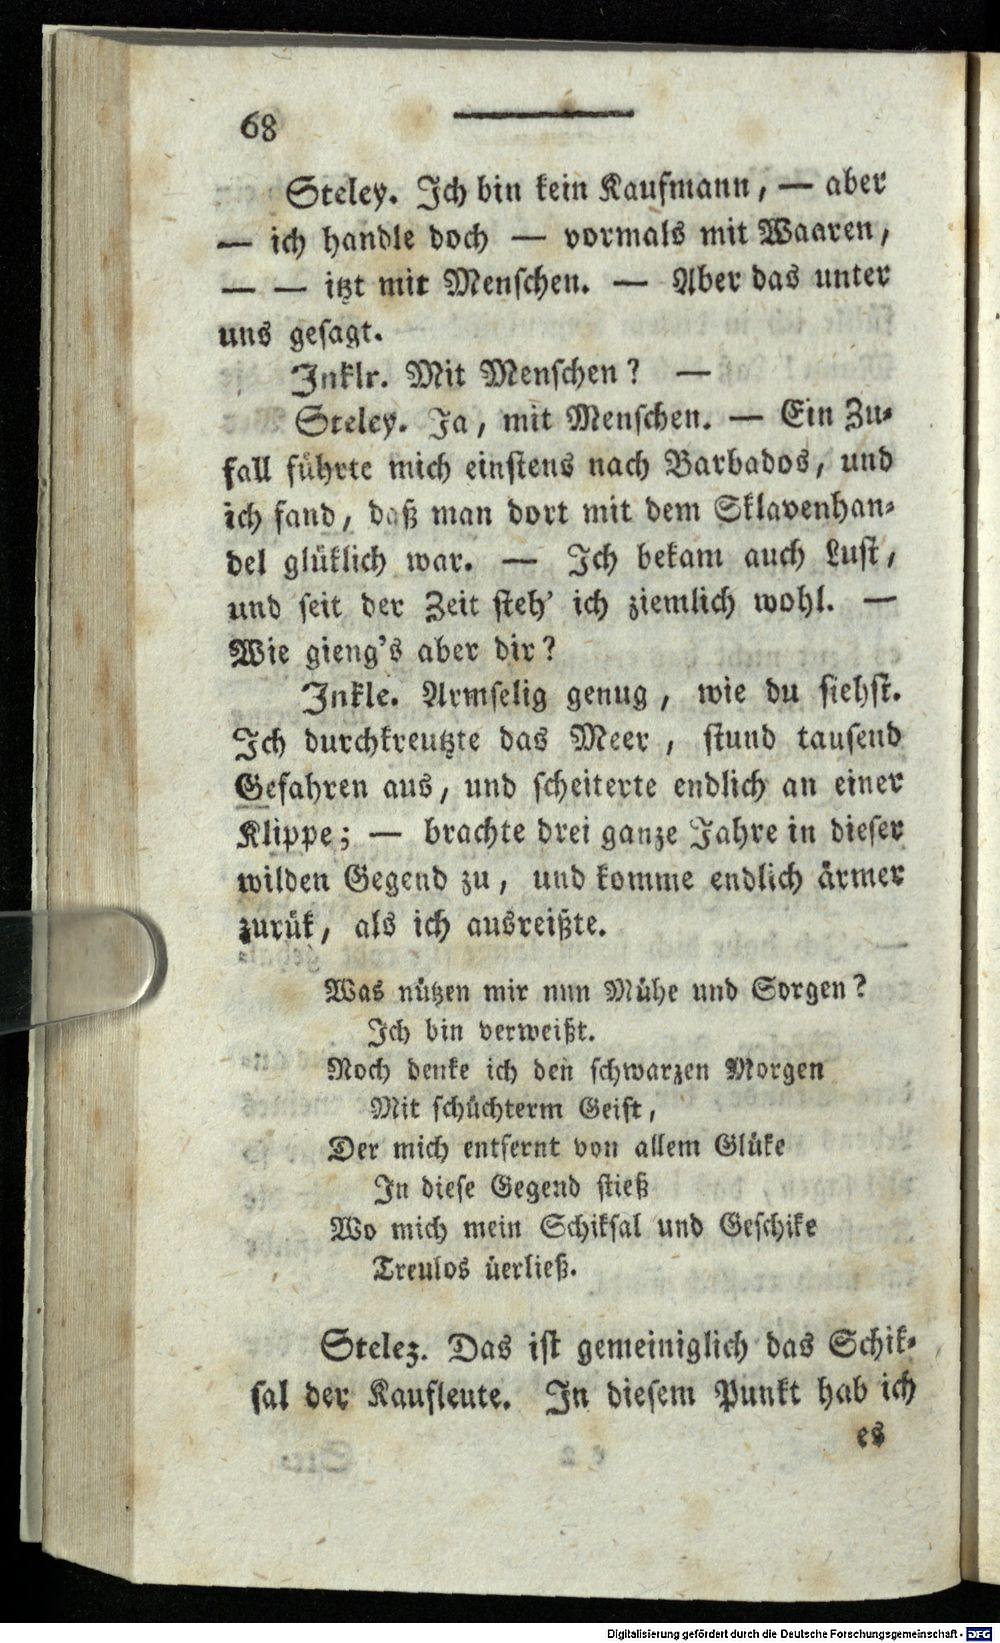 68
Steley. Ich bin kein Kaufmann, — aber
— ich handle doch — vormals mit Waaren,
— — itzt mit Menschen. — Aber das unter
uns gesagt.
Inklr. Mit Menschen? —
Steley. Ja, mit Menschen. — Ein Zu-
fall führte mich einstens nach Barbados, und
ich fand, daß man dort mit dem Sklavenhan-
del glüklich war. — Ich bekam auch Lust,
und seit der Zeit steh' ich ziemlich wohl. —
Wie gieng's aber dir?
Inkle. Armselig genug, wie du siehst.
Ich durchkreutzte das Meer, stund tausend
Gefahren aus, und scheiterte endlich an einer
Klippe; — brachte drei ganze Jahre in dieser
wilden Gegend zu, und komme endlich ärmer
zurük, als ich ausreißte.
Was nützen mir nun Mühe und Sorgen?
Ich bin verweißt.
Noch denke ich den schwarzen Morgen
Mit schüchterm Geist,
Der mich entfernt von allem Glüke
In diese Gegend stieß
Wo mich mein Schiksal und Geschike
Treulos üerließ.
Stelez. Das ist gemeiniglich das Schik-
sal der Kaufleute. In diesem Punkt hab ich
es
Digitalisierung gefördert durch die Deutsche Forschungsgemeinschaft - DFG